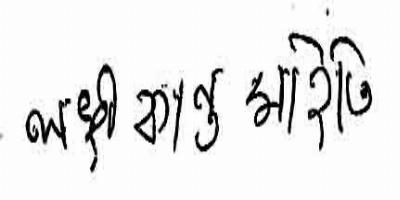 লক্ষ্মী কান্ত মাইতি